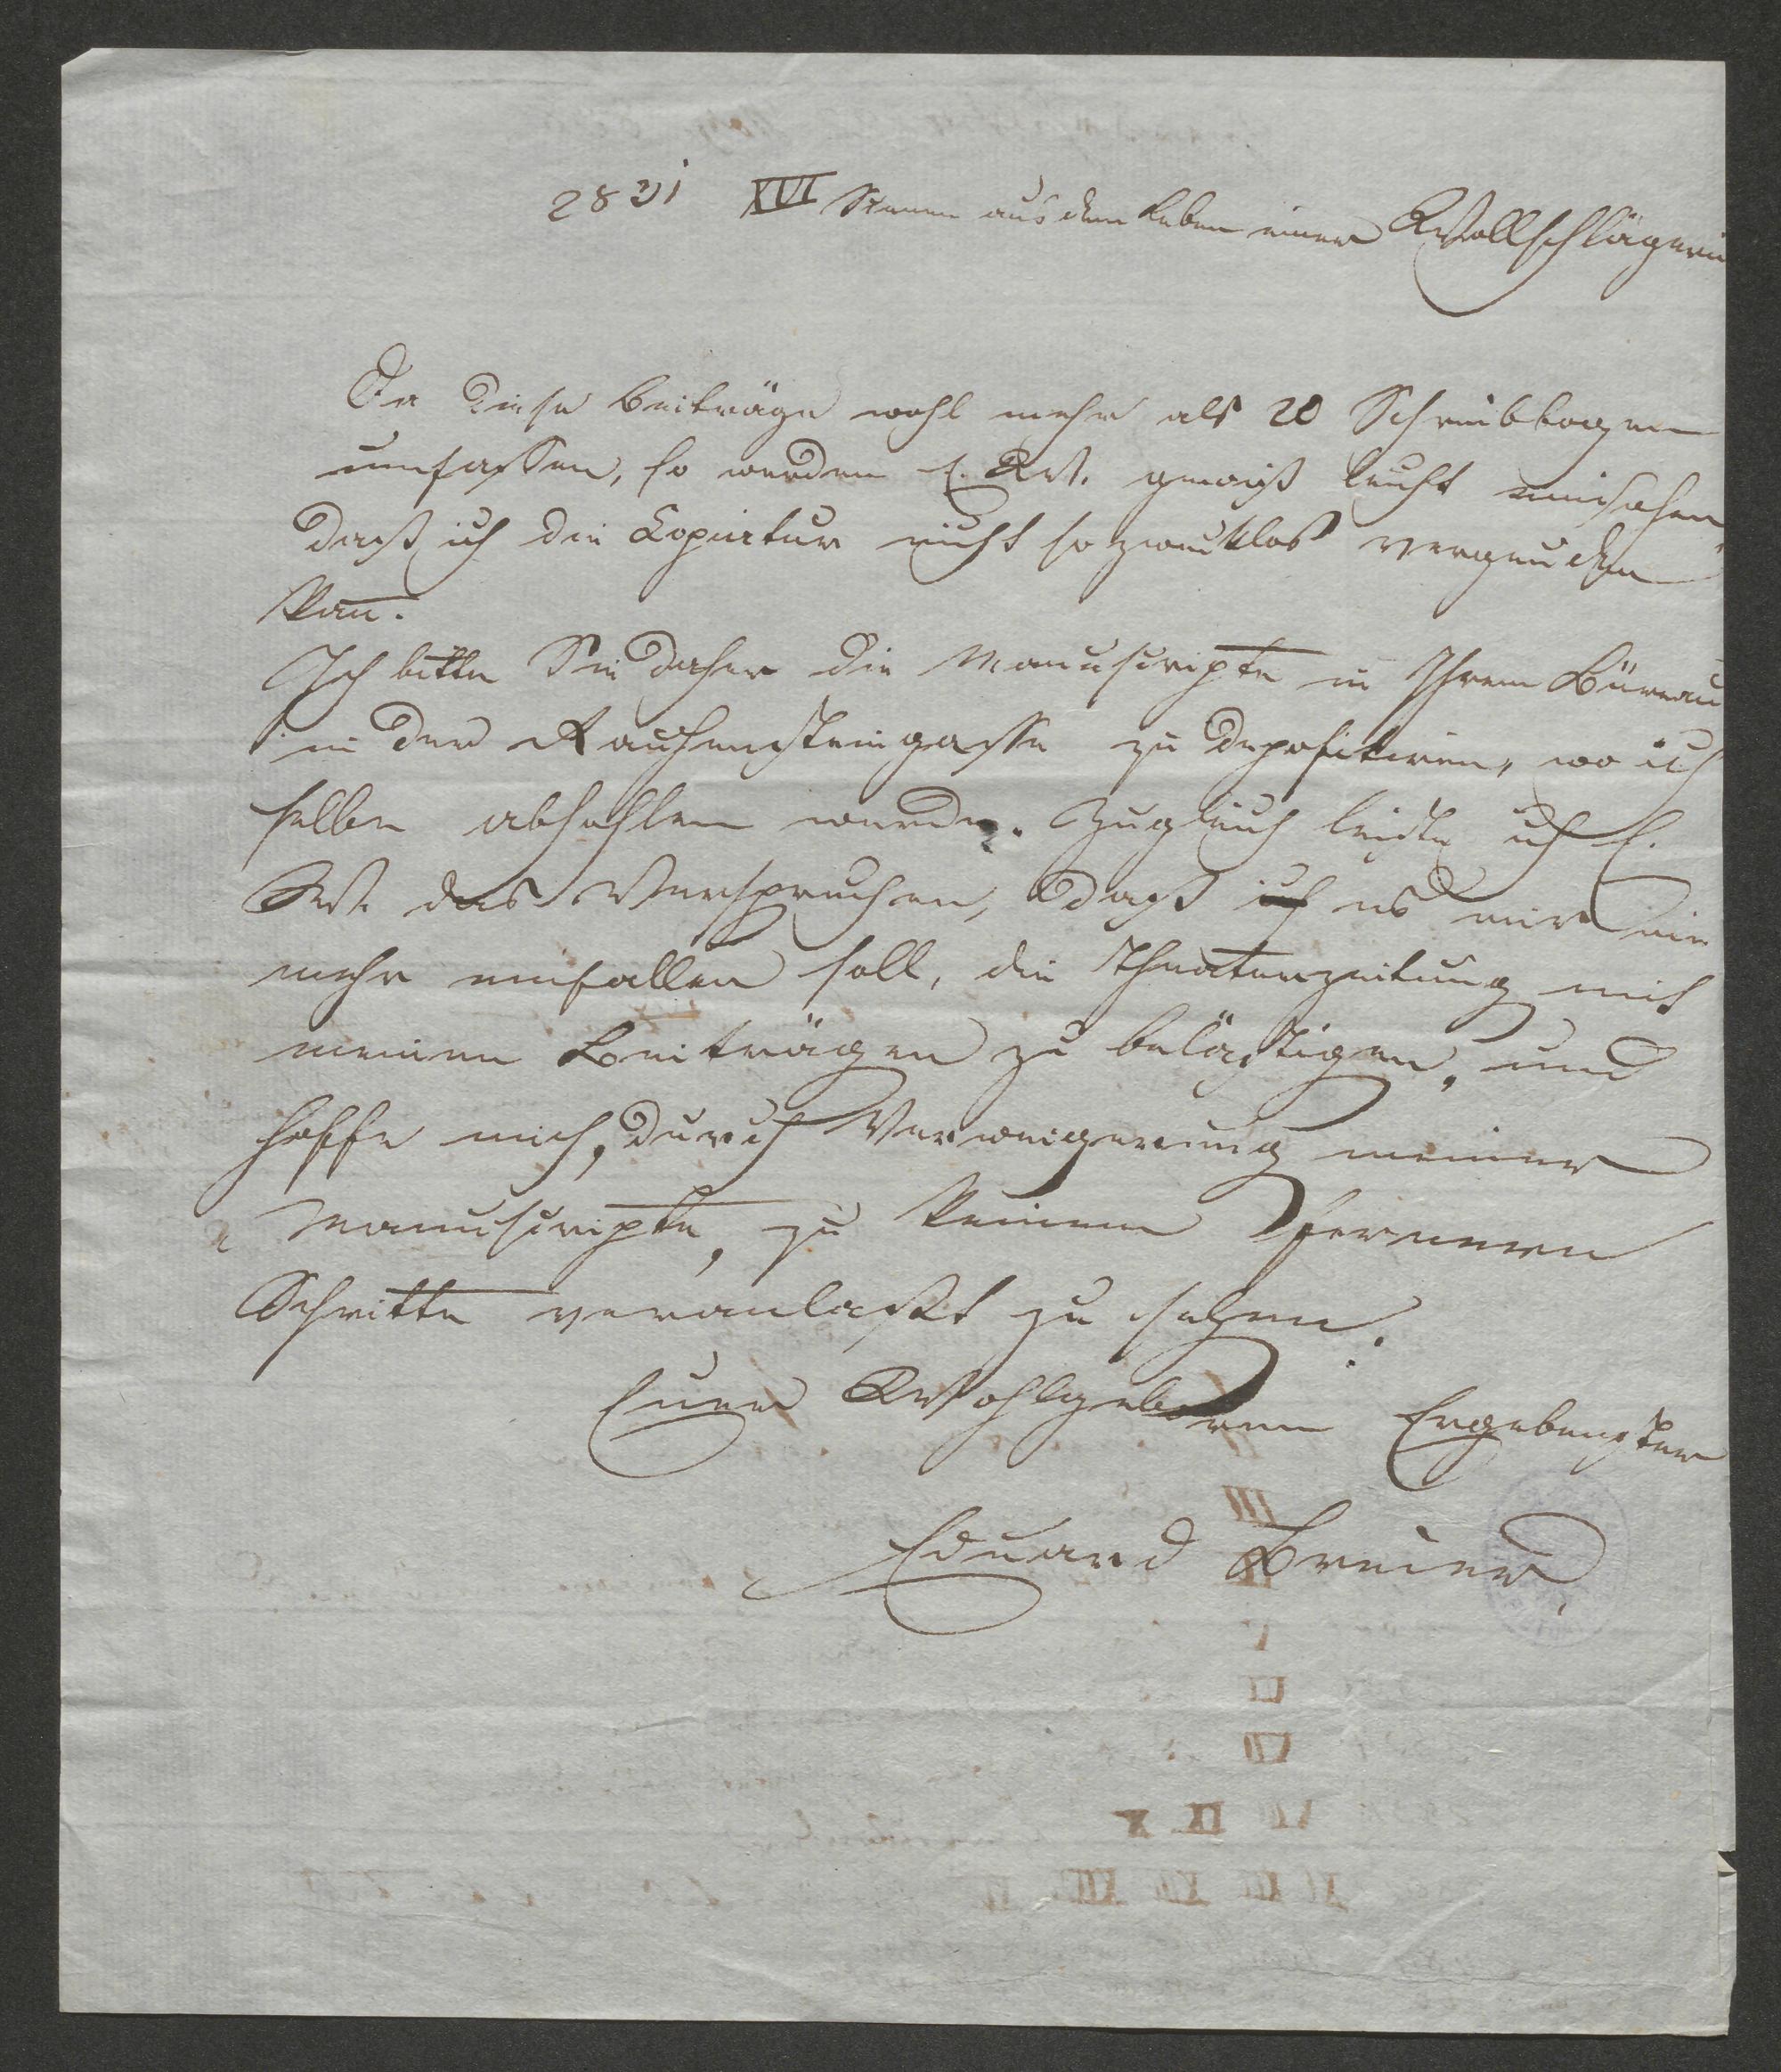 XVI Scenen aus dem Leben einer Wollschlägerin
Da diese Beiträge wohl mehr als 20 Schreibbogen
umfassen, so werden E. W. gewiß leicht einsehen,
daß ich die Copiatur nicht so zwecklos vergeuden
kann.
Ich bitte Sie daher die Manuscripte in Ihrem Büreau
in der Rauhensteingasse zu depositiren, wo ich
selbe abhohlen werde. Zugleich leiste ich E.
W. das Versprechen, daß ich es mir nie
mehr einfallen soll, die Theaterzeitung mit
meinen Beiträgen zu belästigen, und
hoffe mich, durch Verweigerung meiner
Manuscripte, zu keinem ferneren
Schritte veranlaßt zu sehen.
Euer Wohlgeboren Ergebenster
Eduard Breier